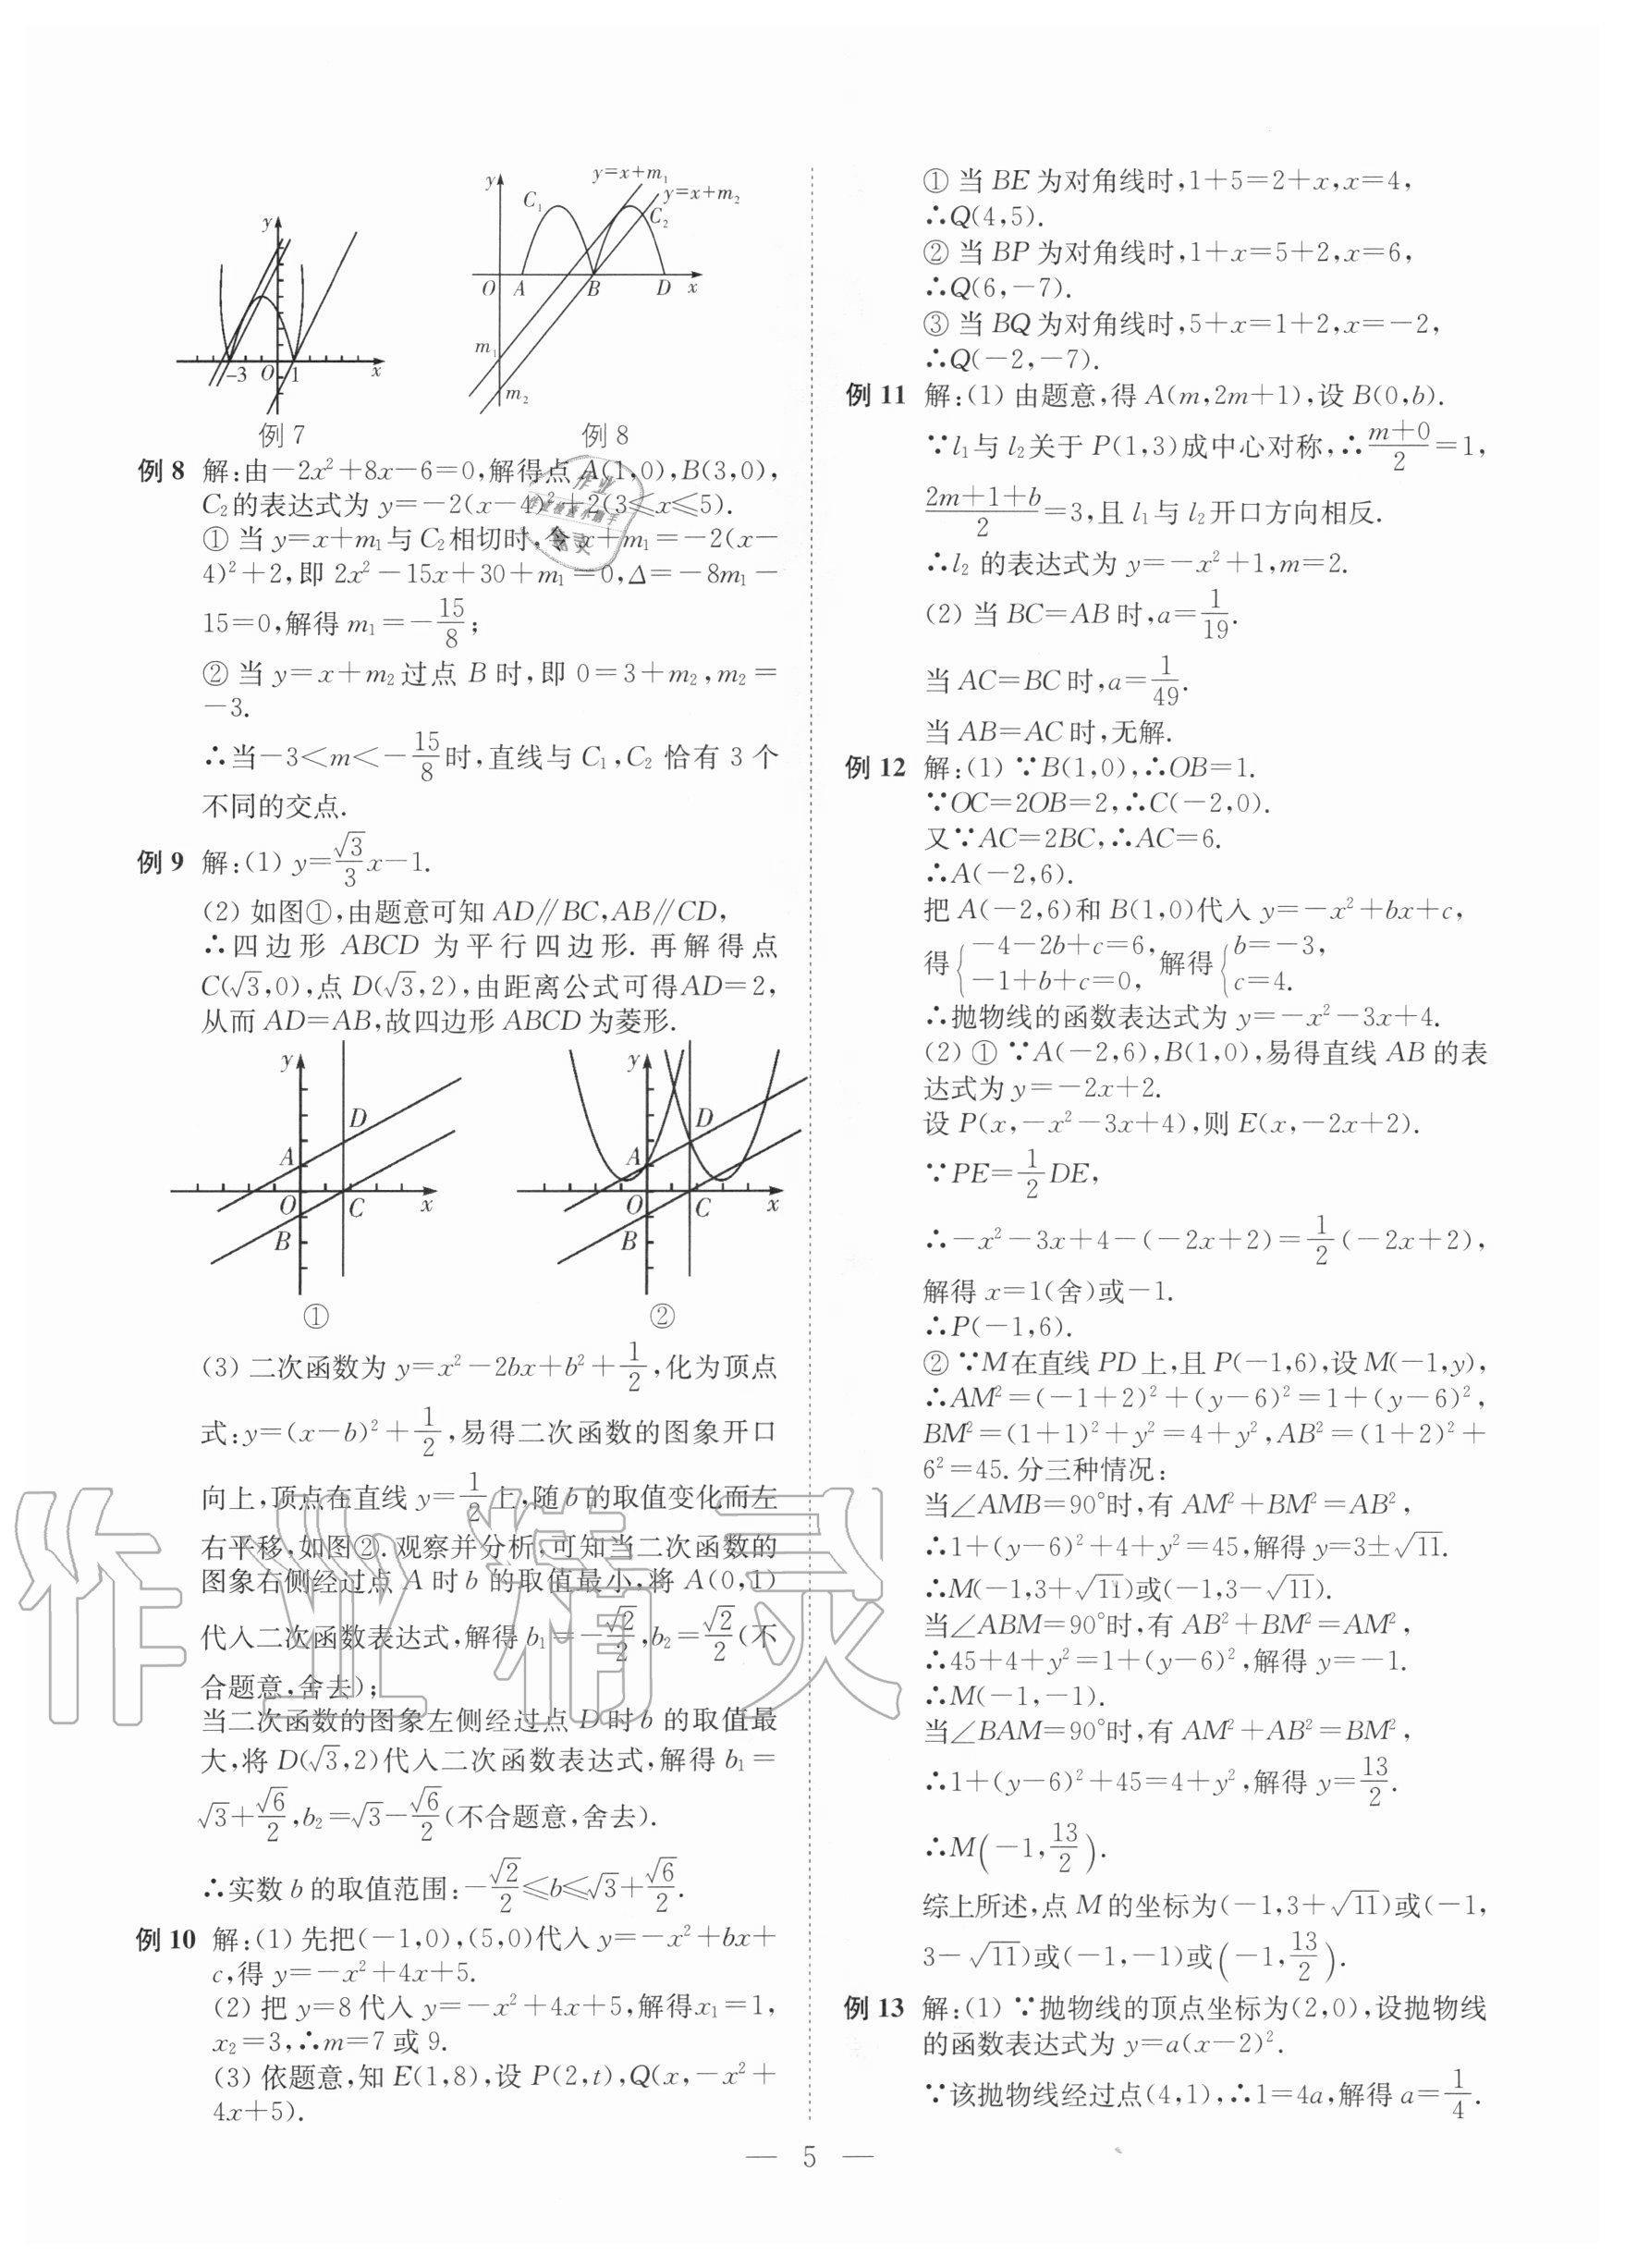 y
-3
O
1
x
例 7
y=x+m₁
y=x+m₂
y
C₁
C₂
O
A
B
D
x
m₁
m₂
例 8
例 8 解:由-2x²+8x-6=0,解得点 A(1,0),B(3,0),
C₂的表达式为 y=-2(x-4)²+2(3≤x≤5).
① 当 y=x+m₁与 C₂相切时,令 x+m₁=-2(x-
4)²+2,即 2x²-15x+30+m₁=0,Δ=-8m₁-
15=0,解得 m₁=-15/8;
② 当 y=x+m₂过点 B 时,即 0=3+m₂,m₂=
-3.
∴当-3<m<-15/8时,直线与 C₁,C₂ 恰有 3 个
不同的交点.
例 9 解:(1) y=√3/3x-1.
(2) 如图①,由题意可知 AD∥BC,AB∥CD,
∴四边形 ABCD 为平行四边形. 再解得点
C(√3,0),点 D(√3,2),由距离公式可得AD=2,
从而 AD=AB,故四边形 ABCD 为菱形.
y
D
A
O
C
x
B
①
y
D
A
O
C
x
B
②
(3) 二次函数为 y=x²-2bx+b²+1/2,化为顶点
式:y=(x-b)²+1/2,易得二次函数的图象开口
向上,顶点在直线 y=1/2上,随 b 的取值变化而左
右平移,如图②.观察并分析,可知当二次函数的
图象右侧经过点 A 时 b 的取值最小,将 A(0,1)
代入二次函数表达式,解得 b₁=-√2/2,b₂=√2/2(不
合题意,舍去);
当二次函数的图象左侧经过点 D 时 b 的取值最
大,将 D(√3,2)代入二次函数表达式,解得 b₁=
√3+√6/2,b₂=√3-√6/2(不合题意,舍去).
∴实数 b 的取值范围:-√2/2≤b≤√3+√6/2.
例 10 解:(1) 先把(-1,0),(5,0)代入 y=-x²+bx+
c,得 y=-x²+4x+5.
(2) 把 y=8代入 y=-x²+4x+5,解得x₁=1,
x₂=3,∴m=7 或 9.
(3) 依题意,知 E(1,8),设 P(2,t),Q(x,-x²+
4x+5).
① 当 BE 为对角线时,1+5=2+x,x=4,
∴Q(4,5).
② 当 BP 为对角线时,1+x=5+2,x=6,
∴Q(6,-7).
③ 当 BQ 为对角线时,5+x=1+2,x=-2,
∴Q(-2,-7).
例 11 解:(1) 由题意,得 A(m,2m+1),设 B(0,b).
∵l₁与 l₂关于 P(1,3)成中心对称,∴(m+0)/2=1,
(2m+1+b)/2=3,且 l₁与 l₂开口方向相反.
∴l₂ 的表达式为 y=-x²+1,m=2.
(2) 当 BC=AB 时,a=1/19.
当 AC=BC 时,a=1/49.
当 AB=AC 时,无解.
例 12 解:(1) ∵B(1,0),∴OB=1.
∵OC=2OB=2,∴C(-2,0).
又∵AC=2BC,∴AC=6.
∴A(-2,6).
把 A(-2,6)和 B(1,0)代入 y=-x²+bx+c,
得{-4-2b+c=6, -1+b+c=0, 解得{b=-3, c=4.
∴抛物线的函数表达式为 y=-x²-3x+4.
(2) ① ∵A(-2,6),B(1,0),易得直线 AB 的表
达式为 y=-2x+2.
设 P(x,-x²-3x+4),则 E(x,-2x+2).
∵PE=1/2DE,
∴-x²-3x+4-(-2x+2)=1/2(-2x+2),
解得 x=1(舍)或-1.
∴P(-1,6).
② ∵M在直线 PD上,且 P(-1,6),设 M(-1,y),
∴AM²=(-1+2)²+(y-6)²=1+(y-6)²,
BM²=(1+1)²+y²=4+y²,AB²=(1+2)²+
6²=45.分三种情况:
当∠AMB=90°时,有 AM²+BM²=AB²,
∴1+(y-6)²+4+y²=45,解得 y=3±√11.
∴M(-1,3+√11)或(-1,3-√11).
当∠ABM=90°时,有 AB²+BM²=AM²,
∴45+4+y²=1+(y-6)²,解得 y=-1.
∴M(-1,-1).
当∠BAM=90°时,有 AM²+AB²=BM²,
∴1+(y-6)²+45=4+y²,解得 y=13/2.
∴M(-1,13/2).
综上所述,点 M 的坐标为(-1,3+√11)或(-1,
3-√11)或(-1,-1)或(-1,13/2).
例 13 解:(1) ∵抛物线的顶点坐标为(2,0),设抛物线
的函数表达式为 y=a(x-2)².
∵该抛物线经过点(4,1),∴1=4a,解得 a=1/4.
— 5 —
作业精灵